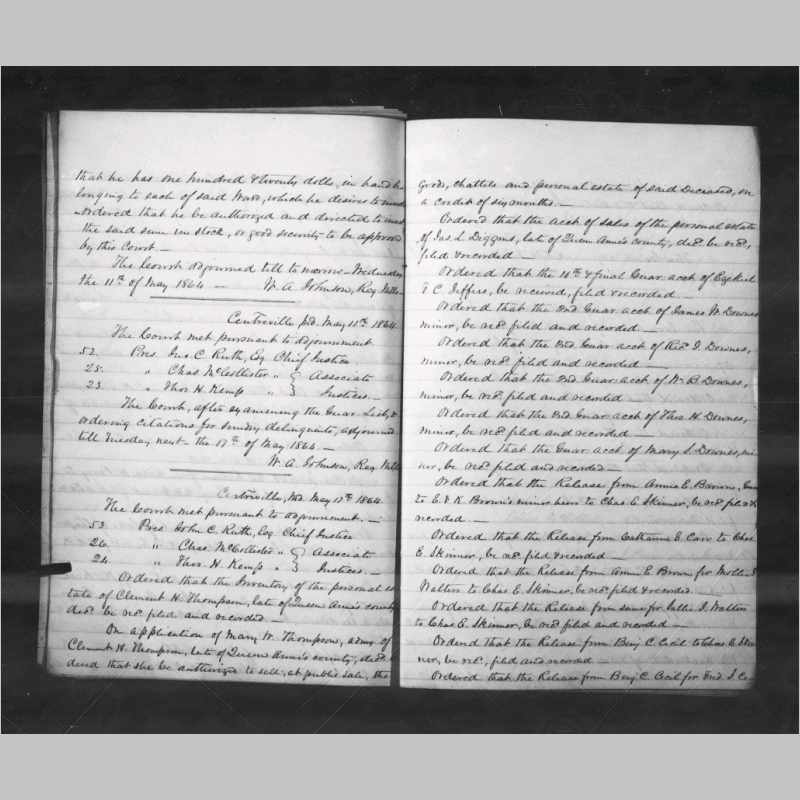 that he has one hundred & twenty dolls, in hand be
longing to each of said Ward, which he desires to
ordered that he be authorized and directed to
the said sume in stock, or good security to be approved
by this Court —
The Court adjourned till to morrow - Wednesday
the 11th of May 1864 — W. A. Johnson, Reg. Wills
Centreville, Md. May 11th 1864
The Court met pursuant to adjournment
52. Pres Jno. C. Ruth, Esq Chief Justice
25. " Chas McCollister " } Associate
23. " Thos H. Kemp " } Justices. —
The Court, after examining the Guar. List, &
ordering citations for sundry delinquents, adjourned
till Tuesday next - the 17th of May 1864. —
W. A. Johnson, Reg. Wills
Centreville, Md. May 17th 1864
The Court met pursuant to adjournment. —
53. Pres John C. Ruth, Esq Chief Justice
26. " Chas. McCollister " } Associate
24. " Thos. H. Kemp " } Justices. —
Ordered that the Inventory of the personal es
tate of Clement H. Thompson, late of Queen Anne's county
decd. be recd. filed and recorded —
On application of Mary W. Thompson, admx. of
Clement H. Thompson, late of Queen Anne's county, decd. or
dered that she be authorized to sell, at public sale, the
goods, chattels and personal estate of said Deceased, on
a credit of six months. —
Ordered that the acct of sales of the personal estate
of Jas. L. Diggins, late of Queen Anne's county, decd. be recd.,
filed & recorded —
Ordered that the 10th & final Guar. acct of Ezekiel
T C Jeffers, be received, filed & recorded —
Ordered that the 3rd Guar acct of James W. Downes
minor, be recd. filed and recorded —
Ordered that the 3rd Guar acct of Richd. I. Downes,
minor, be recd. filed and recorded —
Ordered that the 3rd Guar acct of Wm B. Downes,
minor, be recd. filed and recorded —
Ordered that the 3rd Guar. acct of Thos H. Downes,
minor, be recd. filed and recorded —
Ordered that the Guar. acct of Mary S. Downes, mi
nor, be recd. filed and recorded —
Ordered that the Release from Annie E. Brown, Guar
to E. & K. Brown's minor heirs to Chas E. Skinner, be recd. filed &
recorded. —
Ordered that the Release from Catharine E. Carr to Chas
E. Skinner, be recd. filed & recorded —
Ordered that the Release from Annie E. Brown for Mollie E
Walters to Chas E. Skinner, be recd. filed & recorded.
Ordered that the Release from same for Sallie I. Walters
to Chas E. Skinner, be recd. filed and recorded —
Ordered that the Release from Benj C. Cecil to Chas E. Skin
ner, be recd., filed and recorded —
Ordered that the Release from Benj. C. Cecil for Fred. I. Ce